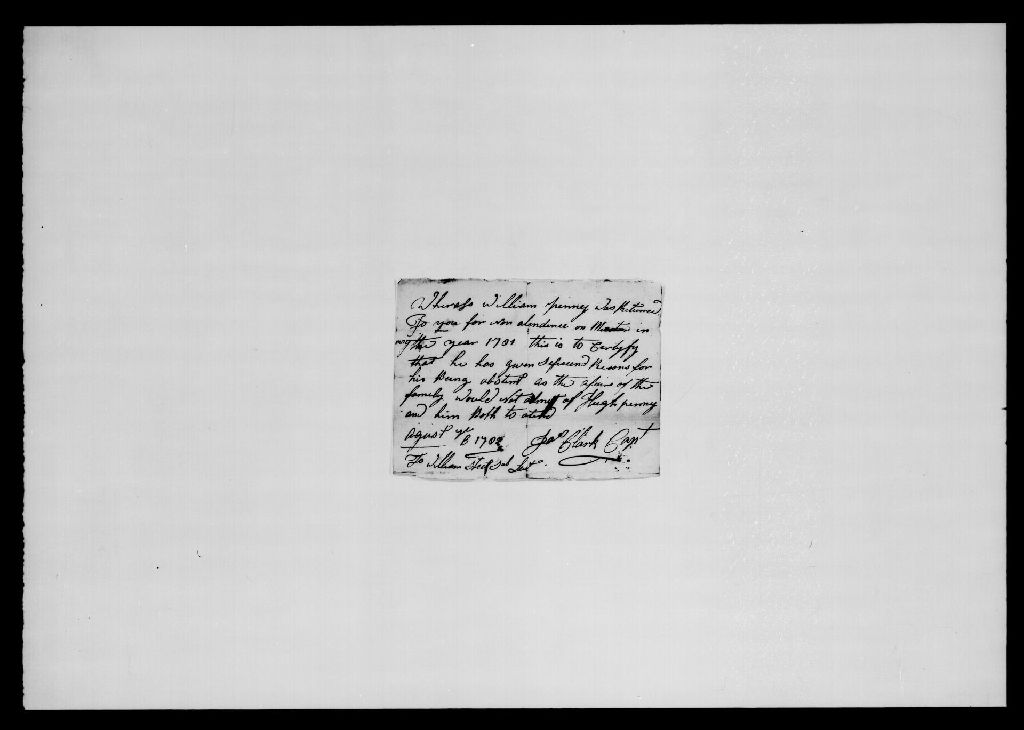 Whereas William penny was Returned
To you for non atendence on Muster in
the year 1781 this is to Certyfy
that he has given Sefisiend Resons for
his Being absent as the afairs of the
family would not admitt of Hugh penny
and him Both to atend
Agust ye 6 1782 Jas Clark Capt
To William Steel Sub Lut